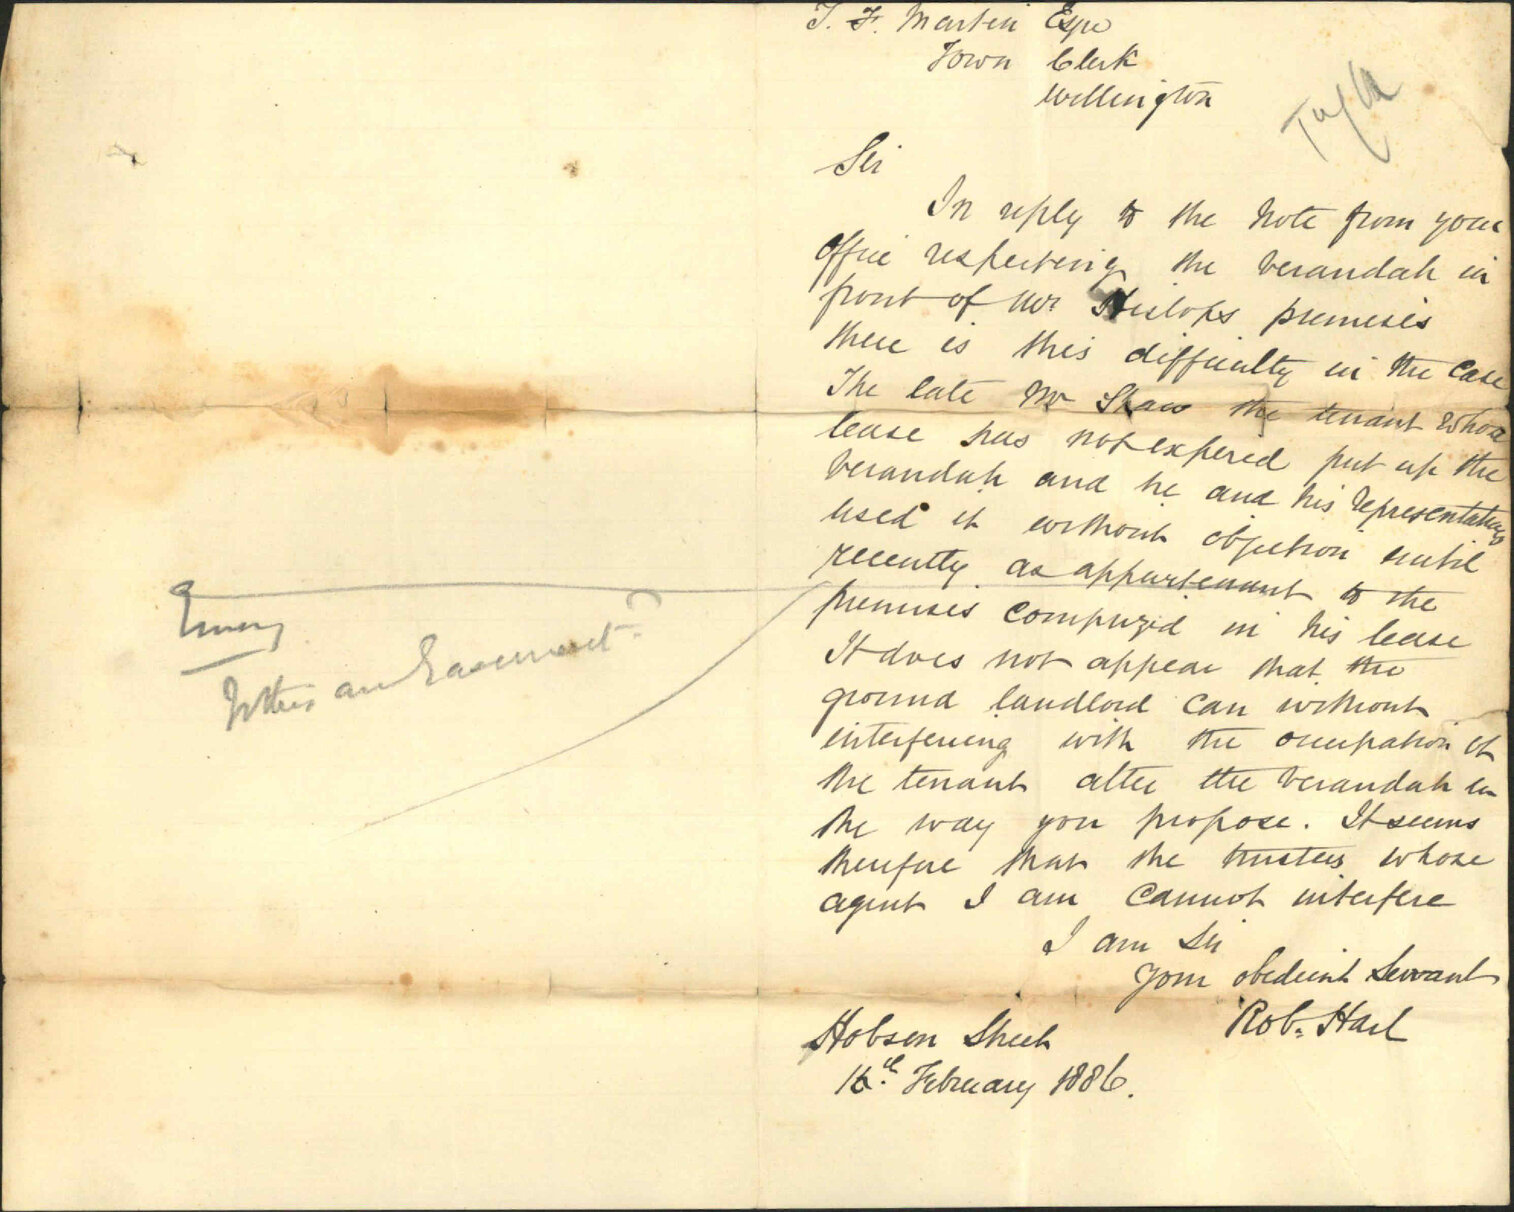 T. F. Martin Esqe
Town Clerk
Wellington
Sir
In reply to the note from your
office respecting the verandah in
front of Mr Hislops premises
there is this difficulty in the case
The late Mr Shaw the tenant whose
lease has not expired put up the
verandah and he and his representatives
used it without objection until
recently as appurtenant to the
premises comprized in his lease
It does not appear that the
ground landlord can without
interfering with the occupation of
the tenant alter the verandah in
the way you propose. It seems
therefore that the trustees whose
agent I am cannot interfere
I am Sir
Your obedient Servant
Rob. Hart
Hobson Street
16th February 1886.
Is this an Easement?